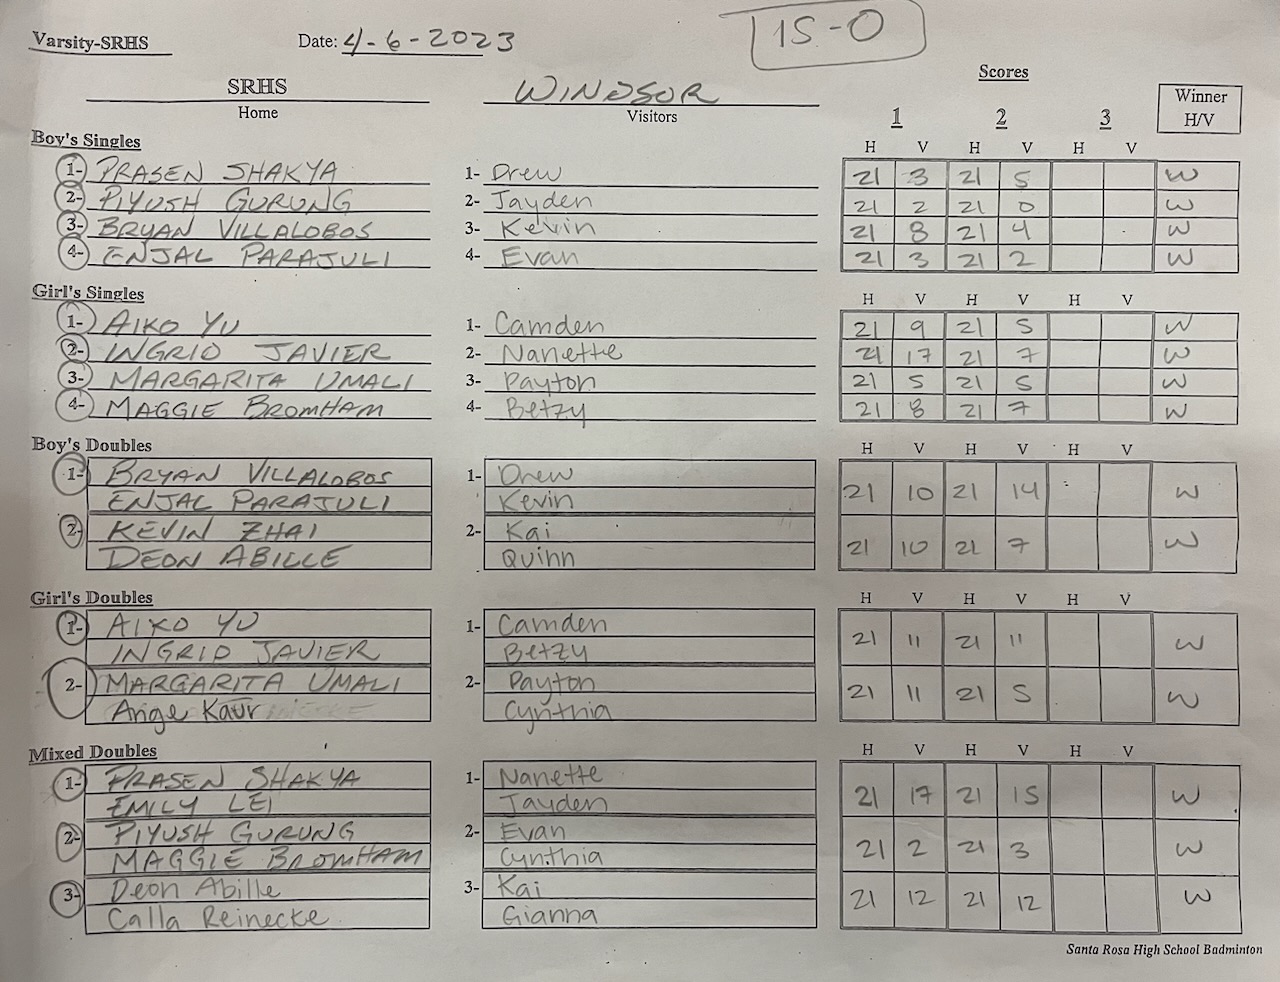 Varsity-SRHS Date: 4-6-2023 15-0
SRHS WINDSOR Scores
Home Visitors 1 2 3 Winner H/V
Boy's Singles H V H V H V
1- PRASEN SHAKYA 1- Drew 21 3 21 5 W
2- PIYUSH GURUNG 2- Jayden 21 2 21 0 W
3- BRYAN VILLALOBOS 3- Kevin 21 8 21 4 W
4- ENJAL PARAJULI 4- Evan 21 3 21 2 W
Girl's Singles H V H V H V
1- AIKO YU 1- Camden 21 9 21 5 W
2- INGRID JAVIER 2- Nanette 21 17 21 7 W
3- MARGARITA UMALI 3- Payton 21 5 21 5 W
4- MAGGIE BROMHAM 4- Betzy 21 8 21 7 W
Boy's Doubles H V H V H V
1- BRYAN VILLALOBOS 1- Drew
ENJAL PARAJULI Kevin 21 10 21 14 W
2- KEVIN ZHAI 2- Kai
DEON ABILLE Quinn 21 10 21 7 W
Girl's Doubles H V H V H V
1- AIKO YU 1- Camden
INGRID JAVIER Betzy 21 11 21 11 W
2- MARGARITA UMALI 2- Payton
Ange Kaur Cynthia 21 11 21 5 W
Mixed Doubles H V H V H V
1- PRASEN SHAKYA 1- Nanette
EMILY LEI Jayden 21 17 21 15 W
2- PIYUSH GURUNG 2- Evan
MAGGIE BROMHAM Cynthia 21 2 21 3 W
3- Deon Abille 3- Kai
Calla Reinecke Gianna 21 12 21 12 W
Santa Rosa High School Badminton